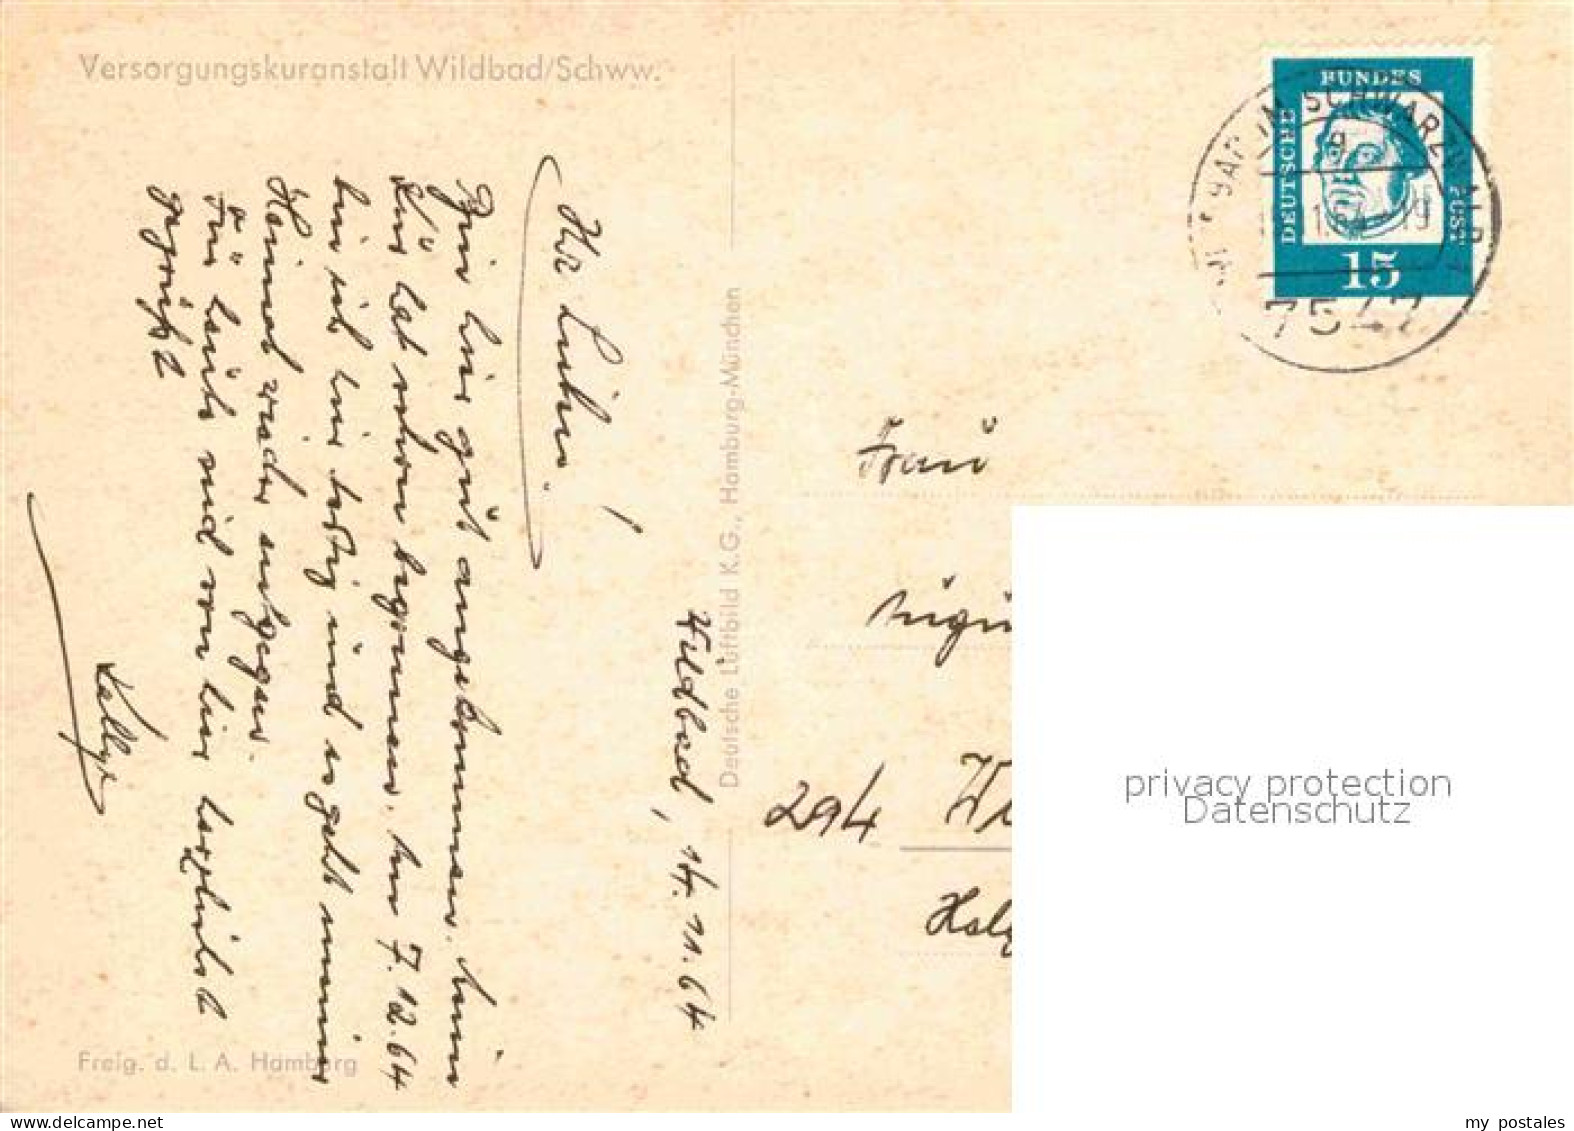 Versorgungskuranstalt Wildbad/Schww.
Wildbad, 14.11.64
Ihr Lieben!
Bin hier gut angekommen. Meine
Kur hat schon begonnen. Am 7.12.64
bin ich hier fertig und es geht meiner
Heimat wieder entgegen.
Für heute seid von hier herzlichst
gegrüßt
Deutsche Luftbild K.G., Hamburg-München
Freig. d. L. A. Hamburg
DEUTSCHE
BUNDES
POST
15
IM SCHWARZWALD
7547
Frau
294
privacy protection
Datenschutz
my postales